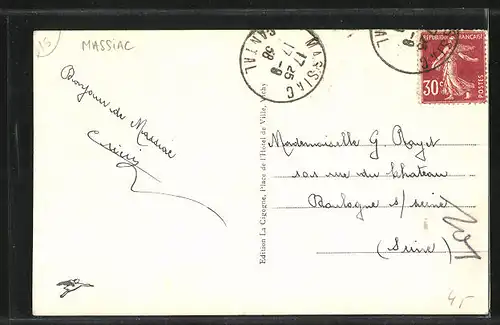 15
MASSIAC
MASSIAC
17 25
17 -8
38
CANTAL
RÉPUBLIQUE FRANÇAISE
30c
POSTES
Bonjour de Massiac
Edition La Cigogne, Place de l'Hôtel de Ville, Vichy
Mademoiselle G. Royet
101 rue du Chateau
Boulogne s/ seine
(Seine)
45